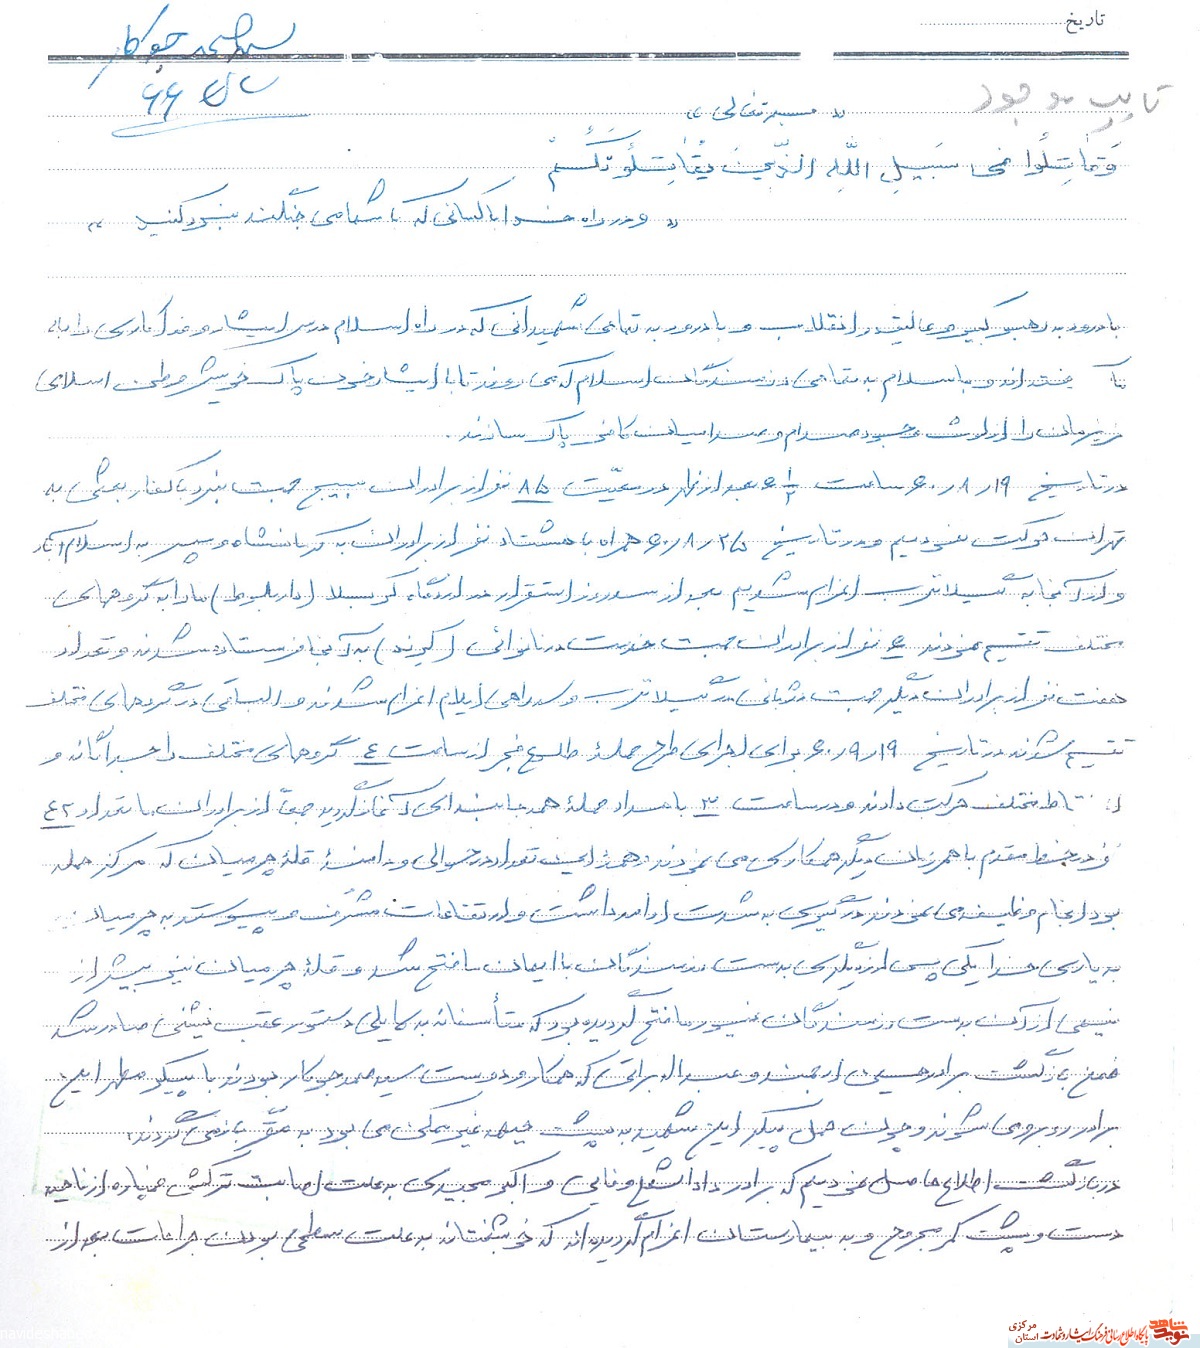 تاریخ
سید صمد جوکار
سال ۶۶
تایپ موجود
« بسمه تعالی »
وَقاتِلُوا فی سَبیلِ اللّهِ الَّذینَ یُقاتِلُونَکُمْ
« و در راه خدا با کسانی که با شما می جنگند نبرد کنید »
با درود به رهبر کبیر و عالیقدر انقلاب و با درود به تمامی شهیدانی که در راه اسلام درس ایثار و فداکاری را به
ما یخته اند و با سلام به تمامی رزمندگان اسلام که می روند تا با ایثار خون پاک خویش وطن اسلامی
عزیزمان را از لوث وجود صدام و صدامیان کافر پاک سازند.
در تاریخ ۶۰/۸/۱۹ ساعت بعد از ظهر در معیّت ۸۵ نفر از برادران بسیج جهت نبرد با کفار بعثی به
تهران حرکت نمودیم و در تاریخ ۶۰/۸/۲۵ همراه با هشتاد نفر از برادران به کرمانشاه و سپس به اسلام آباد
و از آنجا به گیلانغرب اعزام شدیم بعد از سه روز استقرار در اردوگاه کربلا (دار بلوط) ما را به گروههای
مختلف تقسیم نمودند ۶ نفر از برادران جهت خدمت در نانوائی (کرند) به آنجا فرستاده شدند و تعداد
هفت نفر از برادران دیگر جهت دژبانی در گیلانغرب و سه راهی ایلام اعزام شدند و الباقی در گروههای مختلف
تقسیم شدند در تاریخ ۶۰/۹/۱۹ برای اجرای طرح حملهٔ طلوع فجر از ساعت ۴ گروههای مختلف را جداگانه و
از نقاط مختلف حرکت دادند و در ساعت ۳ بامداد حملهٔ همه جانبه ای آغاز گردید جمعاً از برادران ما تعداد ۴۲
نفر در خط مقدم با همرزمان دیگر همکاری می نمودند و همهٔ این تعداد در حوالی و دامنهٔ قلهٔ چرمیان که مرکز حمله
بود انجام وظیفه می نمودند درگیری به شدت ادامه داشت و ارتفاعات مشرف و پیوسته به چرمیان
به یاری خدا یکی پس از دیگری بدست رزمندگان با ایمان ما فتح شد و قلهٔ چرمیان نیز بیش از
نیمی از آن بدست رزمندگان غیور ما فتح گردیده بود که متأسفانه به دلایلی دستور عقب نشینی صادر شد
ضمن بازگشت برادر حسین ارجمند و عبداله براتی که همکار و دوست سید صمد جوکار بودند با پیکر مطهر این
برادر روبرو می شوند و چون حمل پیکر این شهید به پشت جبهه غیر ممکن می بود به مقرّ باز می گردند.
در بازگشت اطلاع حاصل نمودیم که برادر داداشعلی وفایی و اکبر مجیدی به علت اصابت ترکش خمپاره از ناحیه
دست و پشت کمر مجروح و به بیمارستان اعزام گردیده اند که خوشبختانه به علت سطحی بودن جراحات بعد از
نوید شاهد
پایگاه اطلاع رسانی فرهنگ ایثار و شهادت استان مرکزی